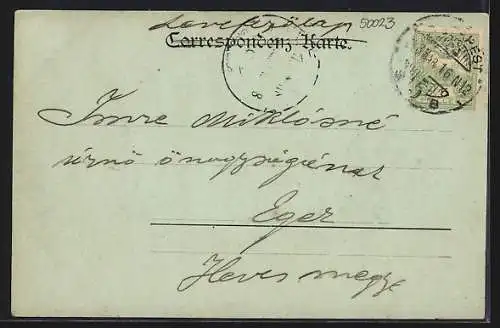 Levelezőlap
50023
Correspondenz-Karte.
PEST
Imre Miklósné
úrnő önagyságának
Eger
Heves megye